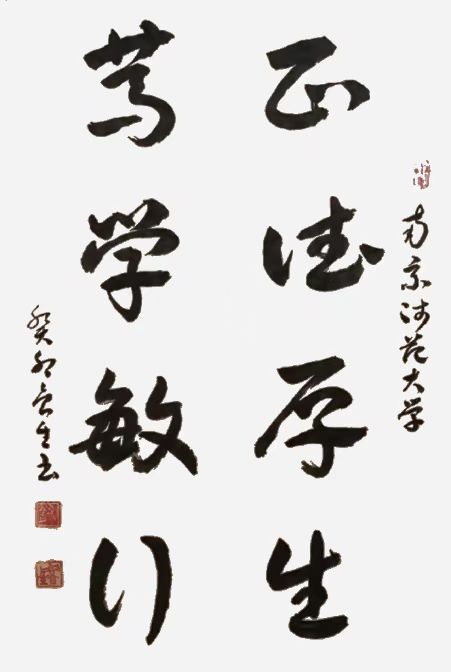 南京师范大学
正德厚生
笃学敏行
癸卯生书